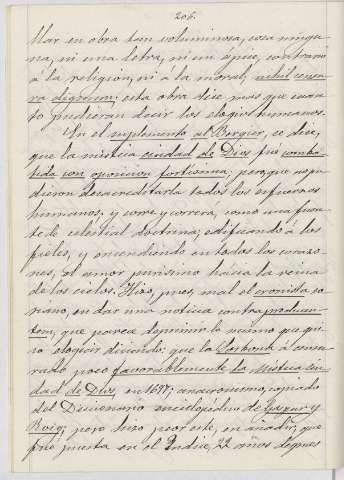 206.
llar en obra tan voluminosa, cosa ningu
na, ni una letra, ni un ápice, contrario
á la religion, ni á la moral; nihil censu
ra dignum; esta obra dice mas que cuan
to pudieran decir los elogios humanos.
En el suplemento al Bergier, se dice,
que la mistica ciudad de Dios fue comba
tida con oposicion fortísima; pero que no pu
dieron desacreditarla todos los esfuerzos
humanos; y corre y correrá, como una fuen
te de celestial doctrina, edificando á los
fieles, y encendiendo en todos los corazo
nes, el amor purísimo hacia la reina
de los cielos. Hizo, pues, mal el cronista so
riano, en dar una noticia contraproducen
tem, que parece deprimir lo mismo que qui
so elogiar diciendo: que la Sorbona á censu
rado poco favorablemente la Mística Ciu
dad de Dios, en 1697; anacronismo, copiado
del Diccionario enciclopédico de Gaspar y
Roig; pero hizo peor este, en añadir, que
fué puesta en el Indice, 22 años despues